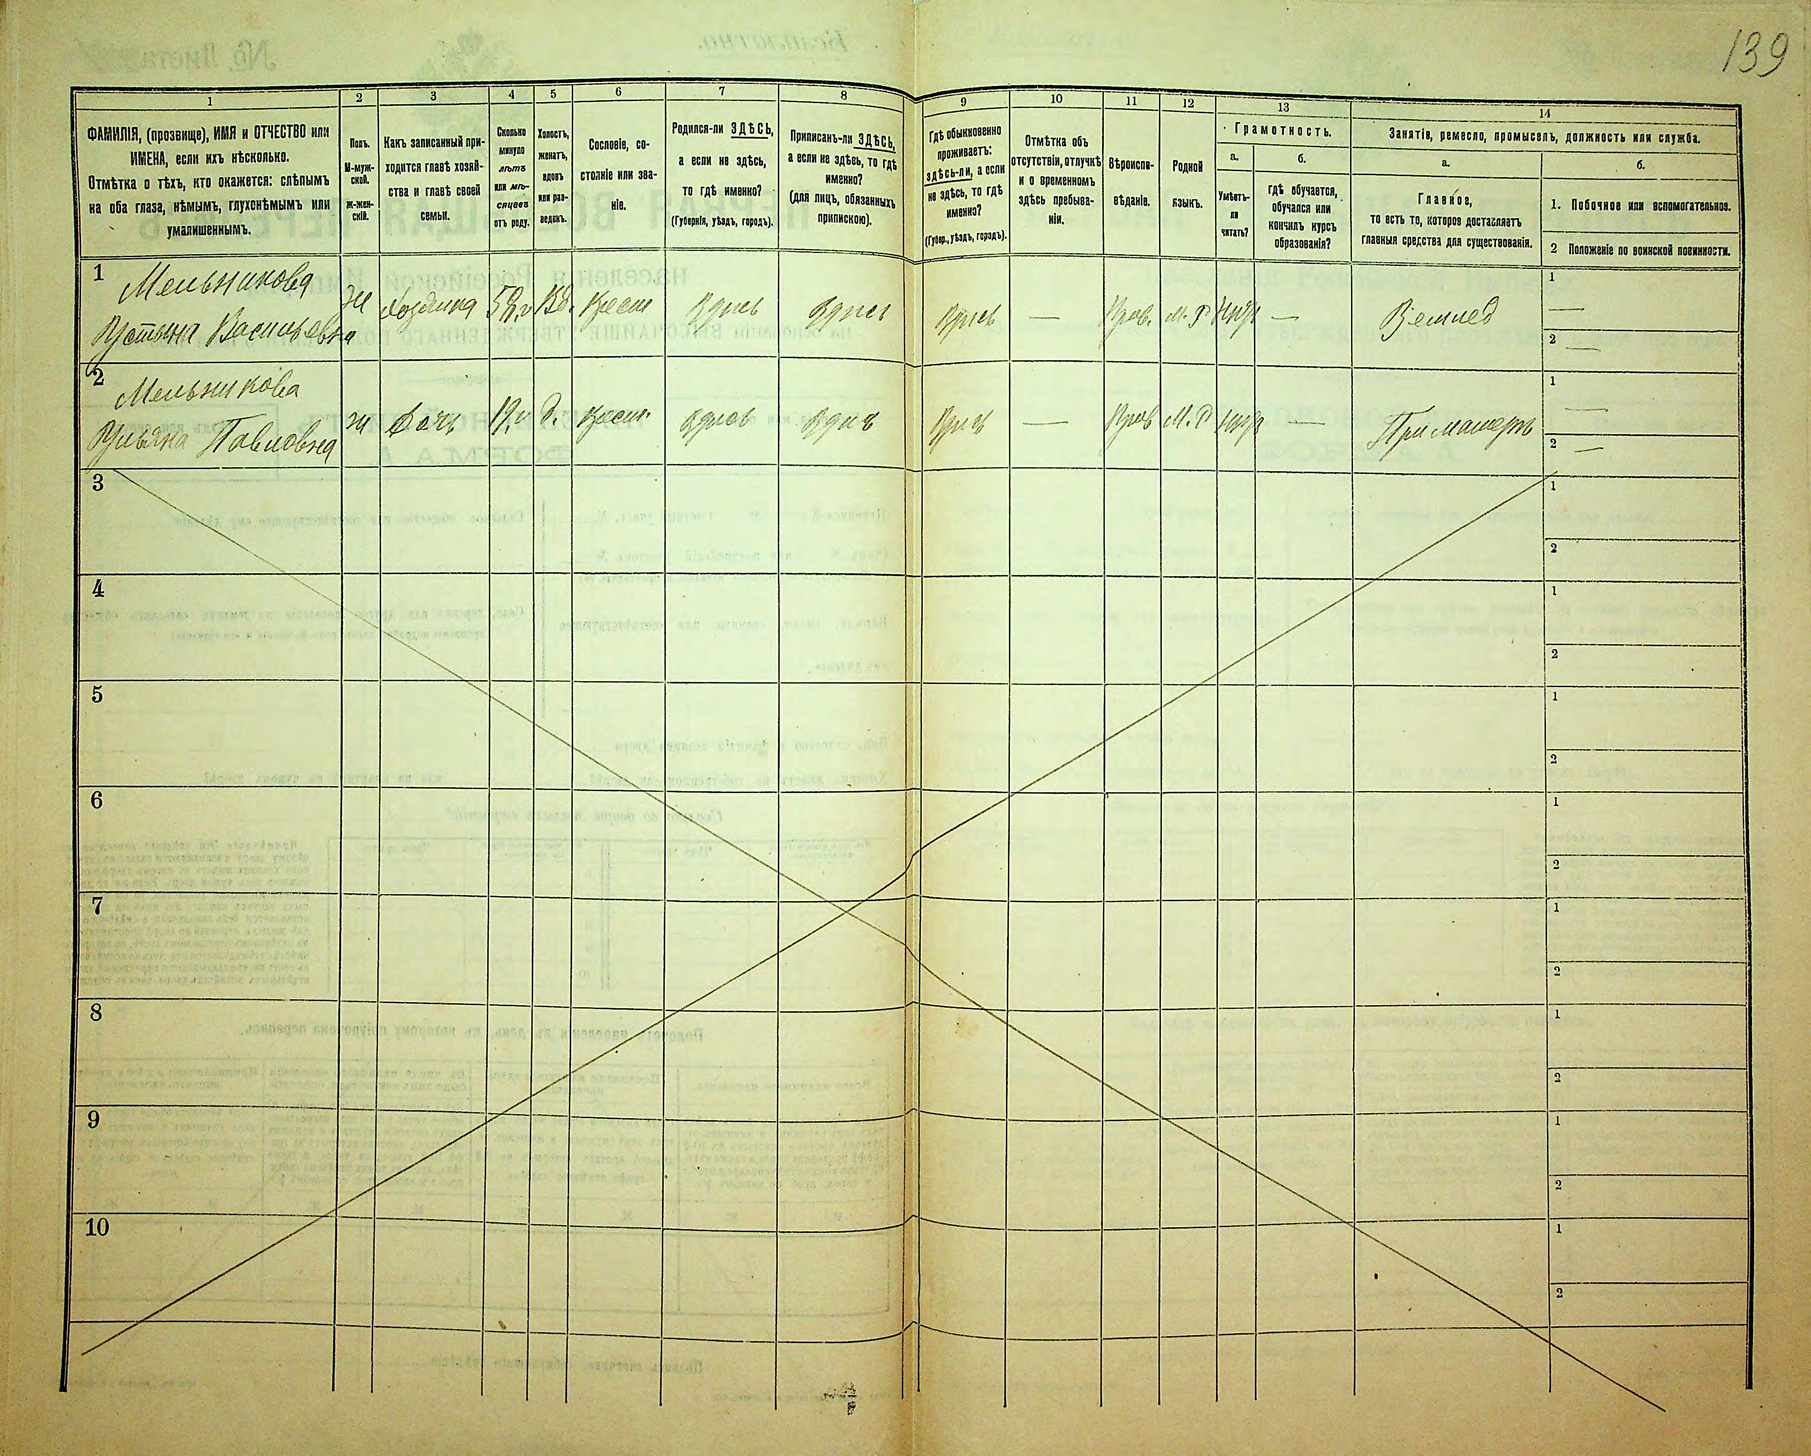 139
1
2
3
4
5
6
7
8
9
10
11
12
13
14
ФАМИЛІЯ, (прозвище), ИМЯ и ОТЧЕСТВО или
ИМЕНА, если ихъ нѣсколько.
Отмѣтка о тѣхъ, кто окажется: слѣпымъ
на оба глаза, нѣмымъ, глухонѣмымъ или
умалишеннымъ.
Полъ.
М-муж-
ской.
ж-жен-
скій.
Какъ записанный при-
ходится главѣ хозяй-
ства и главѣ своей
семьи.
Сколько
минуло
лѣтъ
или мѣ-
сяцевъ
отъ роду.
Холостъ,
женатъ,
вдовъ
или раз-
веденъ.
Сословіе, со-
стояніе или зва-
ніе.
Родился-ли ЗДѢСЬ,
а если не здѣсь,
то гдѣ именно?
(Губернія, уѣздъ, городъ).
Приписанъ-ли ЗДѢСЬ,
а если не здѣсь, то гдѣ
именно?
(для лицъ, обязанныхъ
припискою).
Гдѣ обыкновенно
проживаетъ:
здѣсь-ли, а если
не здѣсь, то гдѣ
именно?
(Губер., уѣздъ, городъ).
Отмѣтка объ
отсутствіи, отлучкѣ
и о временномъ
здѣсь пребыва-
ніи.
Вѣроиспо-
вѣданіе.
Родной
языкъ.
Грамотность.
а.
б.
Умѣетъ-
ли
читать?
Гдѣ обучается,
обучался или
кончилъ курсъ
образованія?
Занятія, ремесло, промыселъ, должность или служба.
а.
б.
Главное,
то есть то, которое доставляетъ
главныя средства для существованія.
1. Побочное или вспомогательное.
2 Положеніе по воинской повинности.
1 Мельникова
Устына Васильевна
ж
хозяика
Вд.
Крест
Здись
Здись
Здись
—
Прав.
м. р
—
Землед
1 —
2 —
2 Мельникова
Ульяна Павловна
ж
дочь
19.
Д.
Крест
Здись
Здись
Здись
—
Прав
М. Р
—
При матерь
1 —
2 —
3
1
2
4
1
2
5
1
2
6
1
2
7
1
2
8
1
2
9
1
2
10
1
2